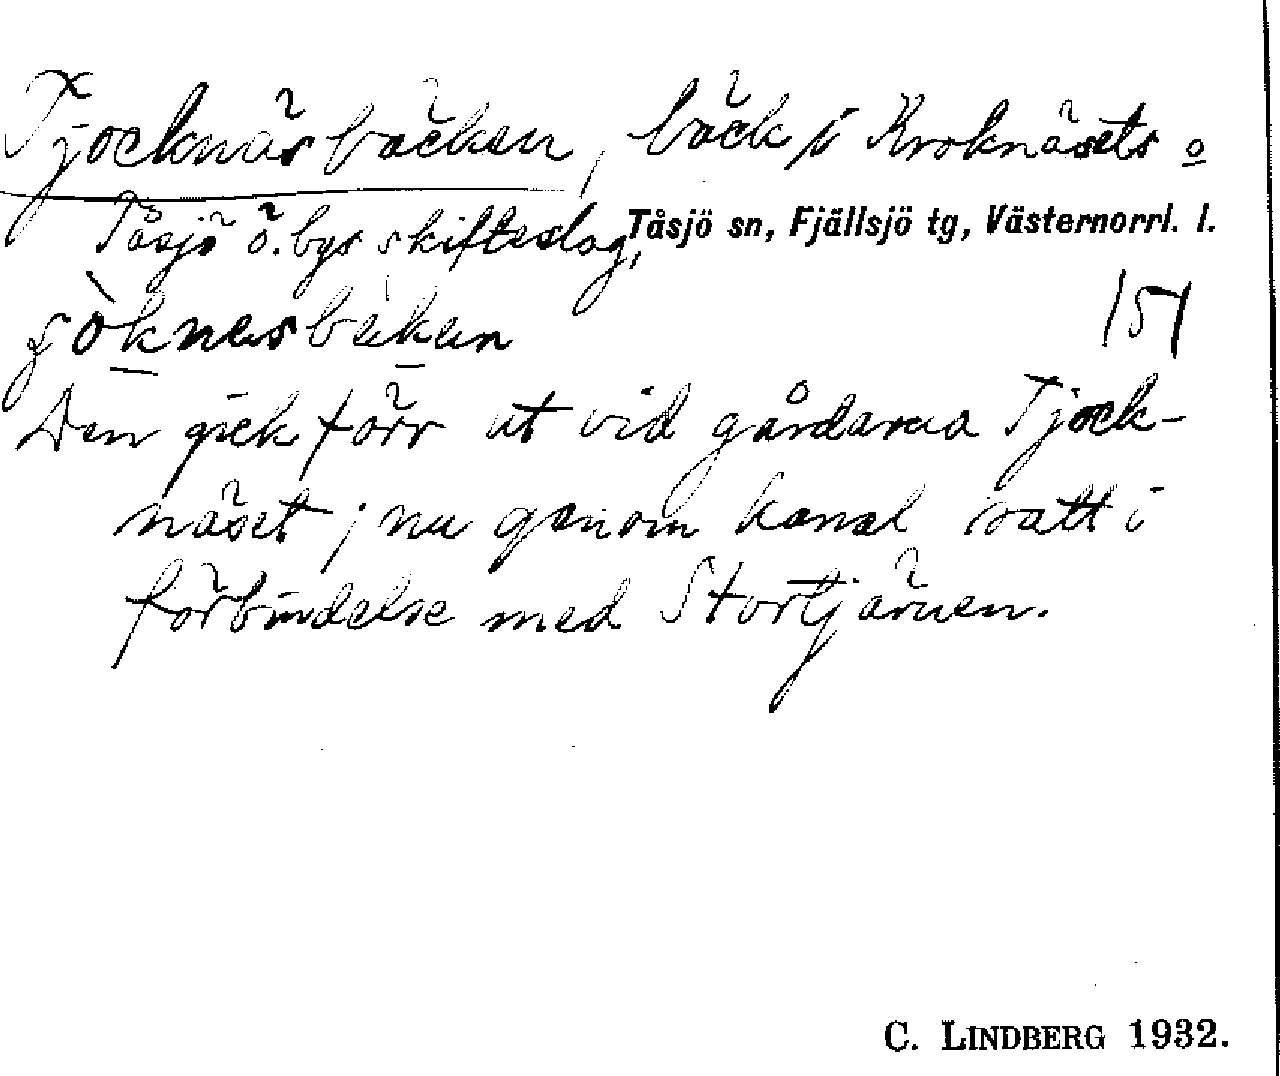 Tjocknäsbäcken, bäck i Kroknäsets o
Tåsjö ö. bys skifteslag, Tåsjö sn, Fjällsjö tg, Västernorrl. l.
çòknesbäken
151
Den gick förr ut vid gårdarna Tjock-
näset; nu genom kanal satt i
förbindelse med Stortjärnen.
C. LINDBERG 1932.